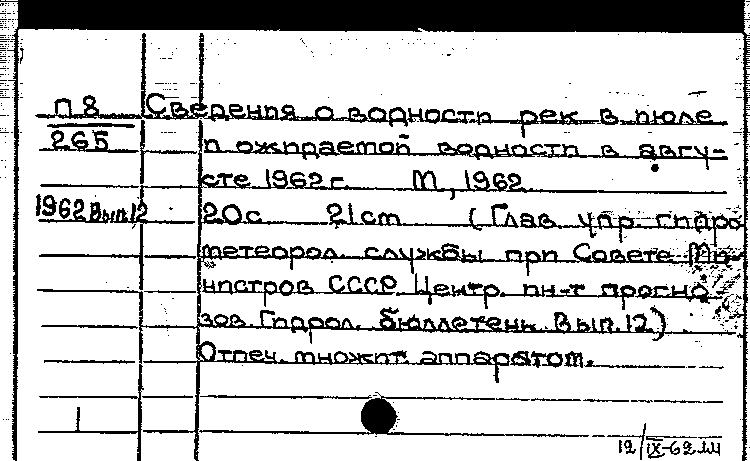 П 8
265
1962 Вып.12
Сведения о водности рек в июле
и ожидаемой водности в авгу-
сте 1962 г. М, 1962.
20 с. 21 cm (Глав. упр. гидро
метеорол. службы при Совете Ми-
нистров СССР. Центр. ин-т прогно-
зов. Гидрол. бюллетень. Вып. 12).
Отпеч. множит. аппаратом.
1
12/IX-62